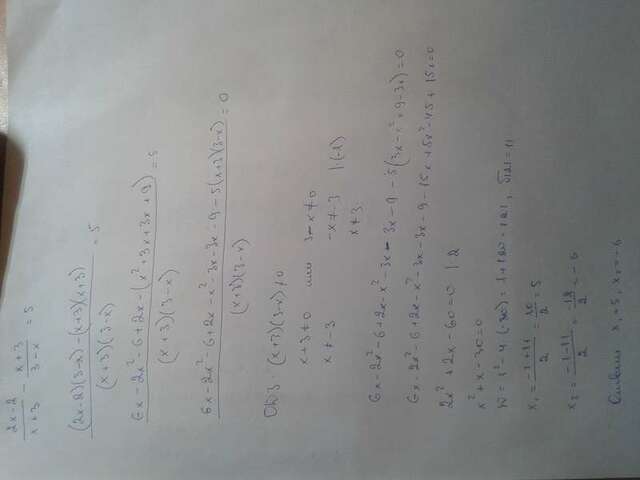 2x-2/x+3 - x+3/3-x = 5
(2x-2)(3-x)-(x+3)(x+3)/(x+3)(3-x) = 5
6x-2x²-6+2x-(x²+3x+3x+9)/(x+3)(3-x) = 5
6x-2x²-6+2x-x²-3x-3x-9-5(x+3)(3-x)/(x+3)(3-x) = 0
ОДЗ (x+3)(3-x)≠0
x+3≠0 или 3-x≠0
x≠-3 -x≠-3 |·(-1)
x≠3
6x-2x²-6+2x-x²-3x-3x-9-5(3x-x²+9-3x)=0
6x-2x²-6+2x-x²-3x-3x-9-15x+5x²-45+15x=0
2x²+2x-60=0 |:2
x²+x-30=0
D=1²-4·(-30)=1+120=121, √121=11
x₁=-1+11/2=10/2=5
x₂=-1-11/2=-12/2=-6
x₁=5, x₂=-6